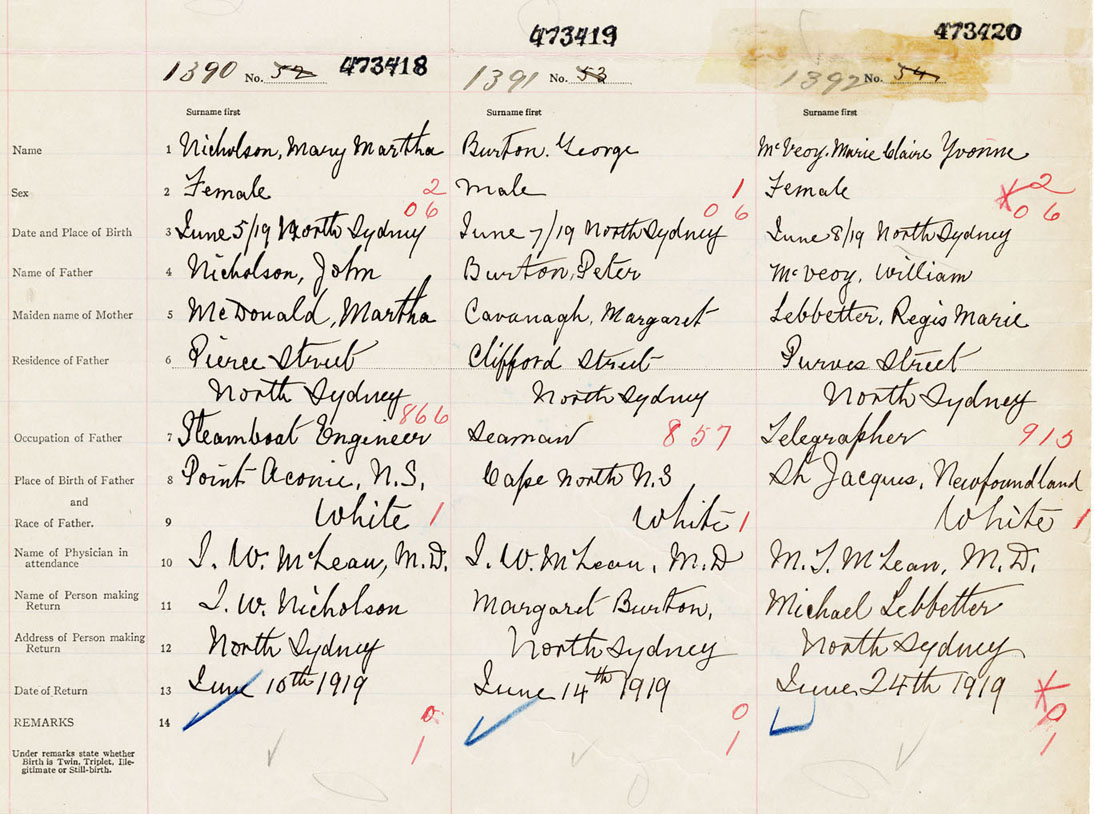 473418 473419 473420
1390 No. 52 1391 No. 53 1392 No. 54
Surname first Surname first Surname first
Name 1 Nicholson, Mary Martha Burton. George McVeoy. Marie Claire Yvonne
Sex 2 Female 2 Male 1 Female 2
06 06 06
Date and Place of Birth 3 June 5/19 North Sydney June 7/19 North Sydney June 8/19 North Sydney
Name of Father 4 Nicholson, John Burton, Peter McVeoy, William
Maiden name of Mother 5 McDonald, Martha Cavanagh, Margaret Lebbetter, Regis Marie
Residence of Father 6 Pierce Street Clifford Street Purves Street
North Sydney North Sydney North Sydney
866
Occupation of Father 7 Steamboat Engineer Seaman 857 Telegrapher 915
Place of Birth of Father 8 Point Aconie, N.S. Cape North N.S Jacques, Newfoundland
and
Race of Father. 9 White 1 White 1 White 1
Name of Physician in
attendance 10 I. W. McLean, M.D. I. W. McLean, M.D M. T. McLean, M.D.
Name of Person making
Return 11 I. W. Nicholson Margaret Burton, Michael Lebbetter
Address of Person making
Return 12 North Sydney North Sydney North Sydney
Date of Return 13 June 10th 1919 June 14th 1919 June 24th 1919
REMARKS 14 0 0 0
1 1 1
Under remarks state whether
Birth is Twin, Triplet, Ille-
gitimate or Still-birth.